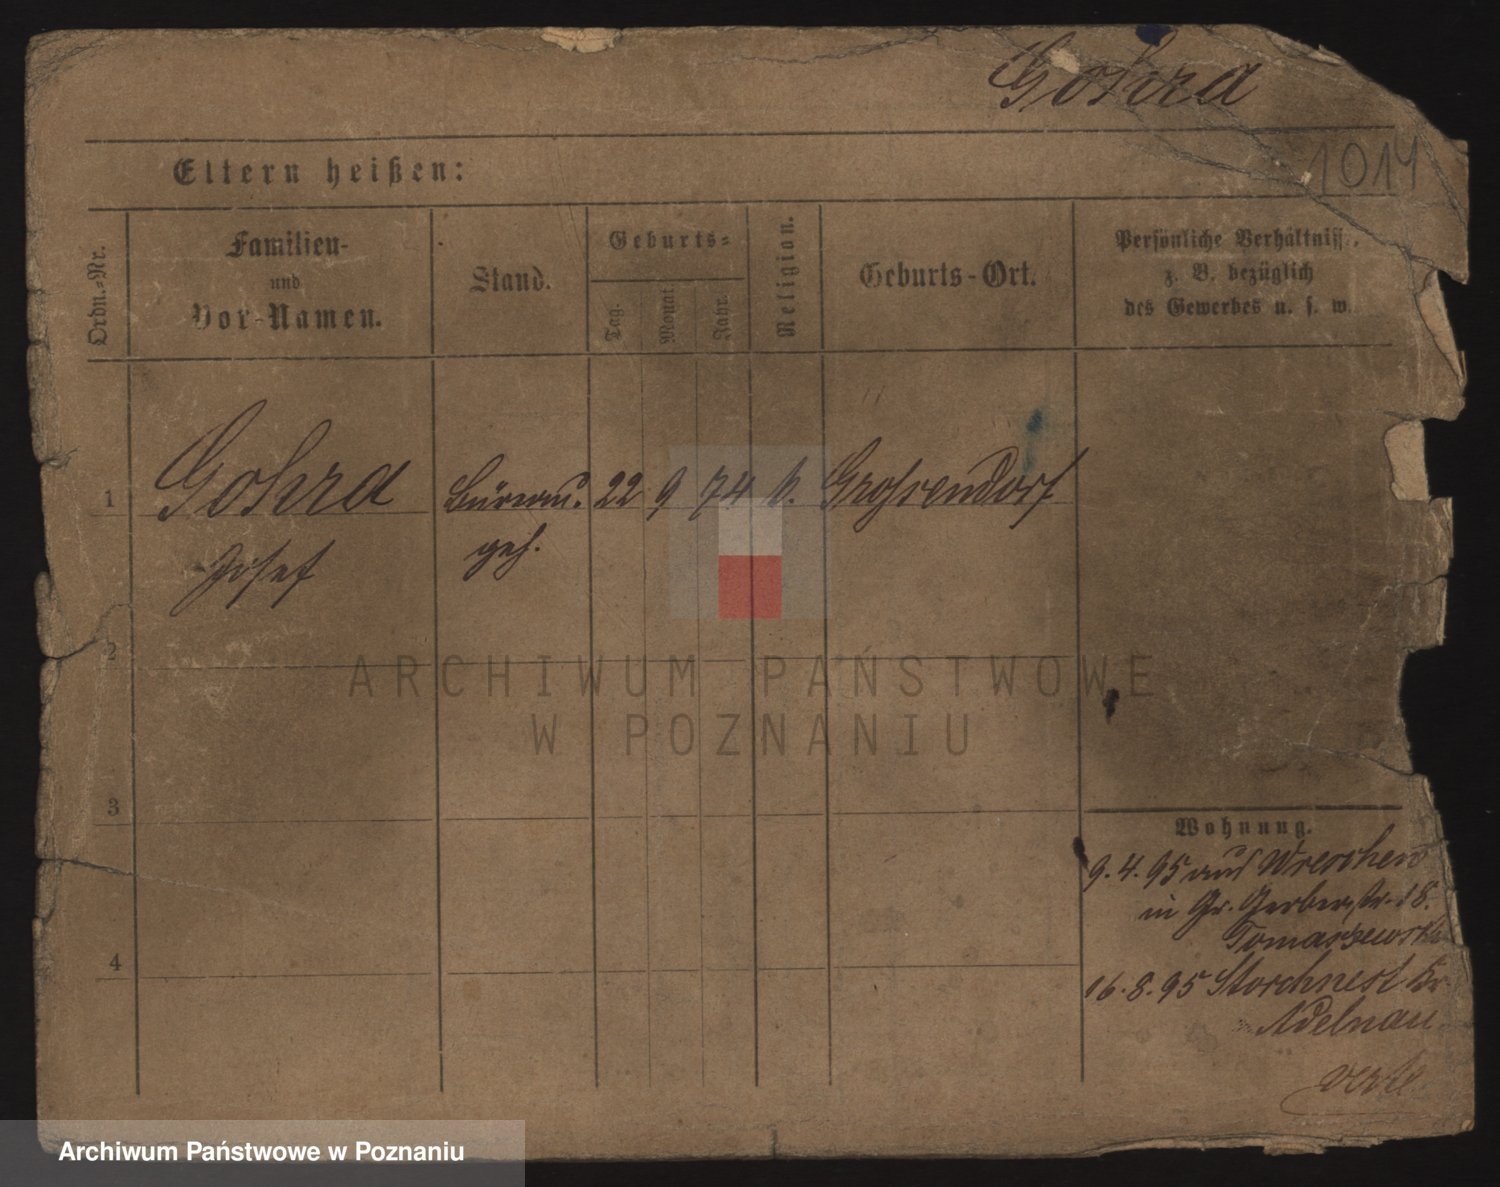 Gohra
1014
Eltern heißen:
Ordn.-Nr.
Familien-
und
Vor-Namen.
Stand.
Geburts-
Tag.
Monat.
Jahr.
Religion.
Geburts-Ort.
Persönliche Verhältniss
z. B. bezüglich
des Gewerbes u. s. w.
1 Gohra Büreau. 22 9 74 k. Grossendorf
Josef geh.
2
3
4
Wohnung.
9. 4. 95 aus Wreschen
in Gr. Gerberstr. 18.
Tomaszewski
16. 8. 95 Storchnest Kr.
Adelnau
verte
ARCHIWUM PAŃSTWOWE
W POZNANIU
Archiwum Państwowe w Poznaniu